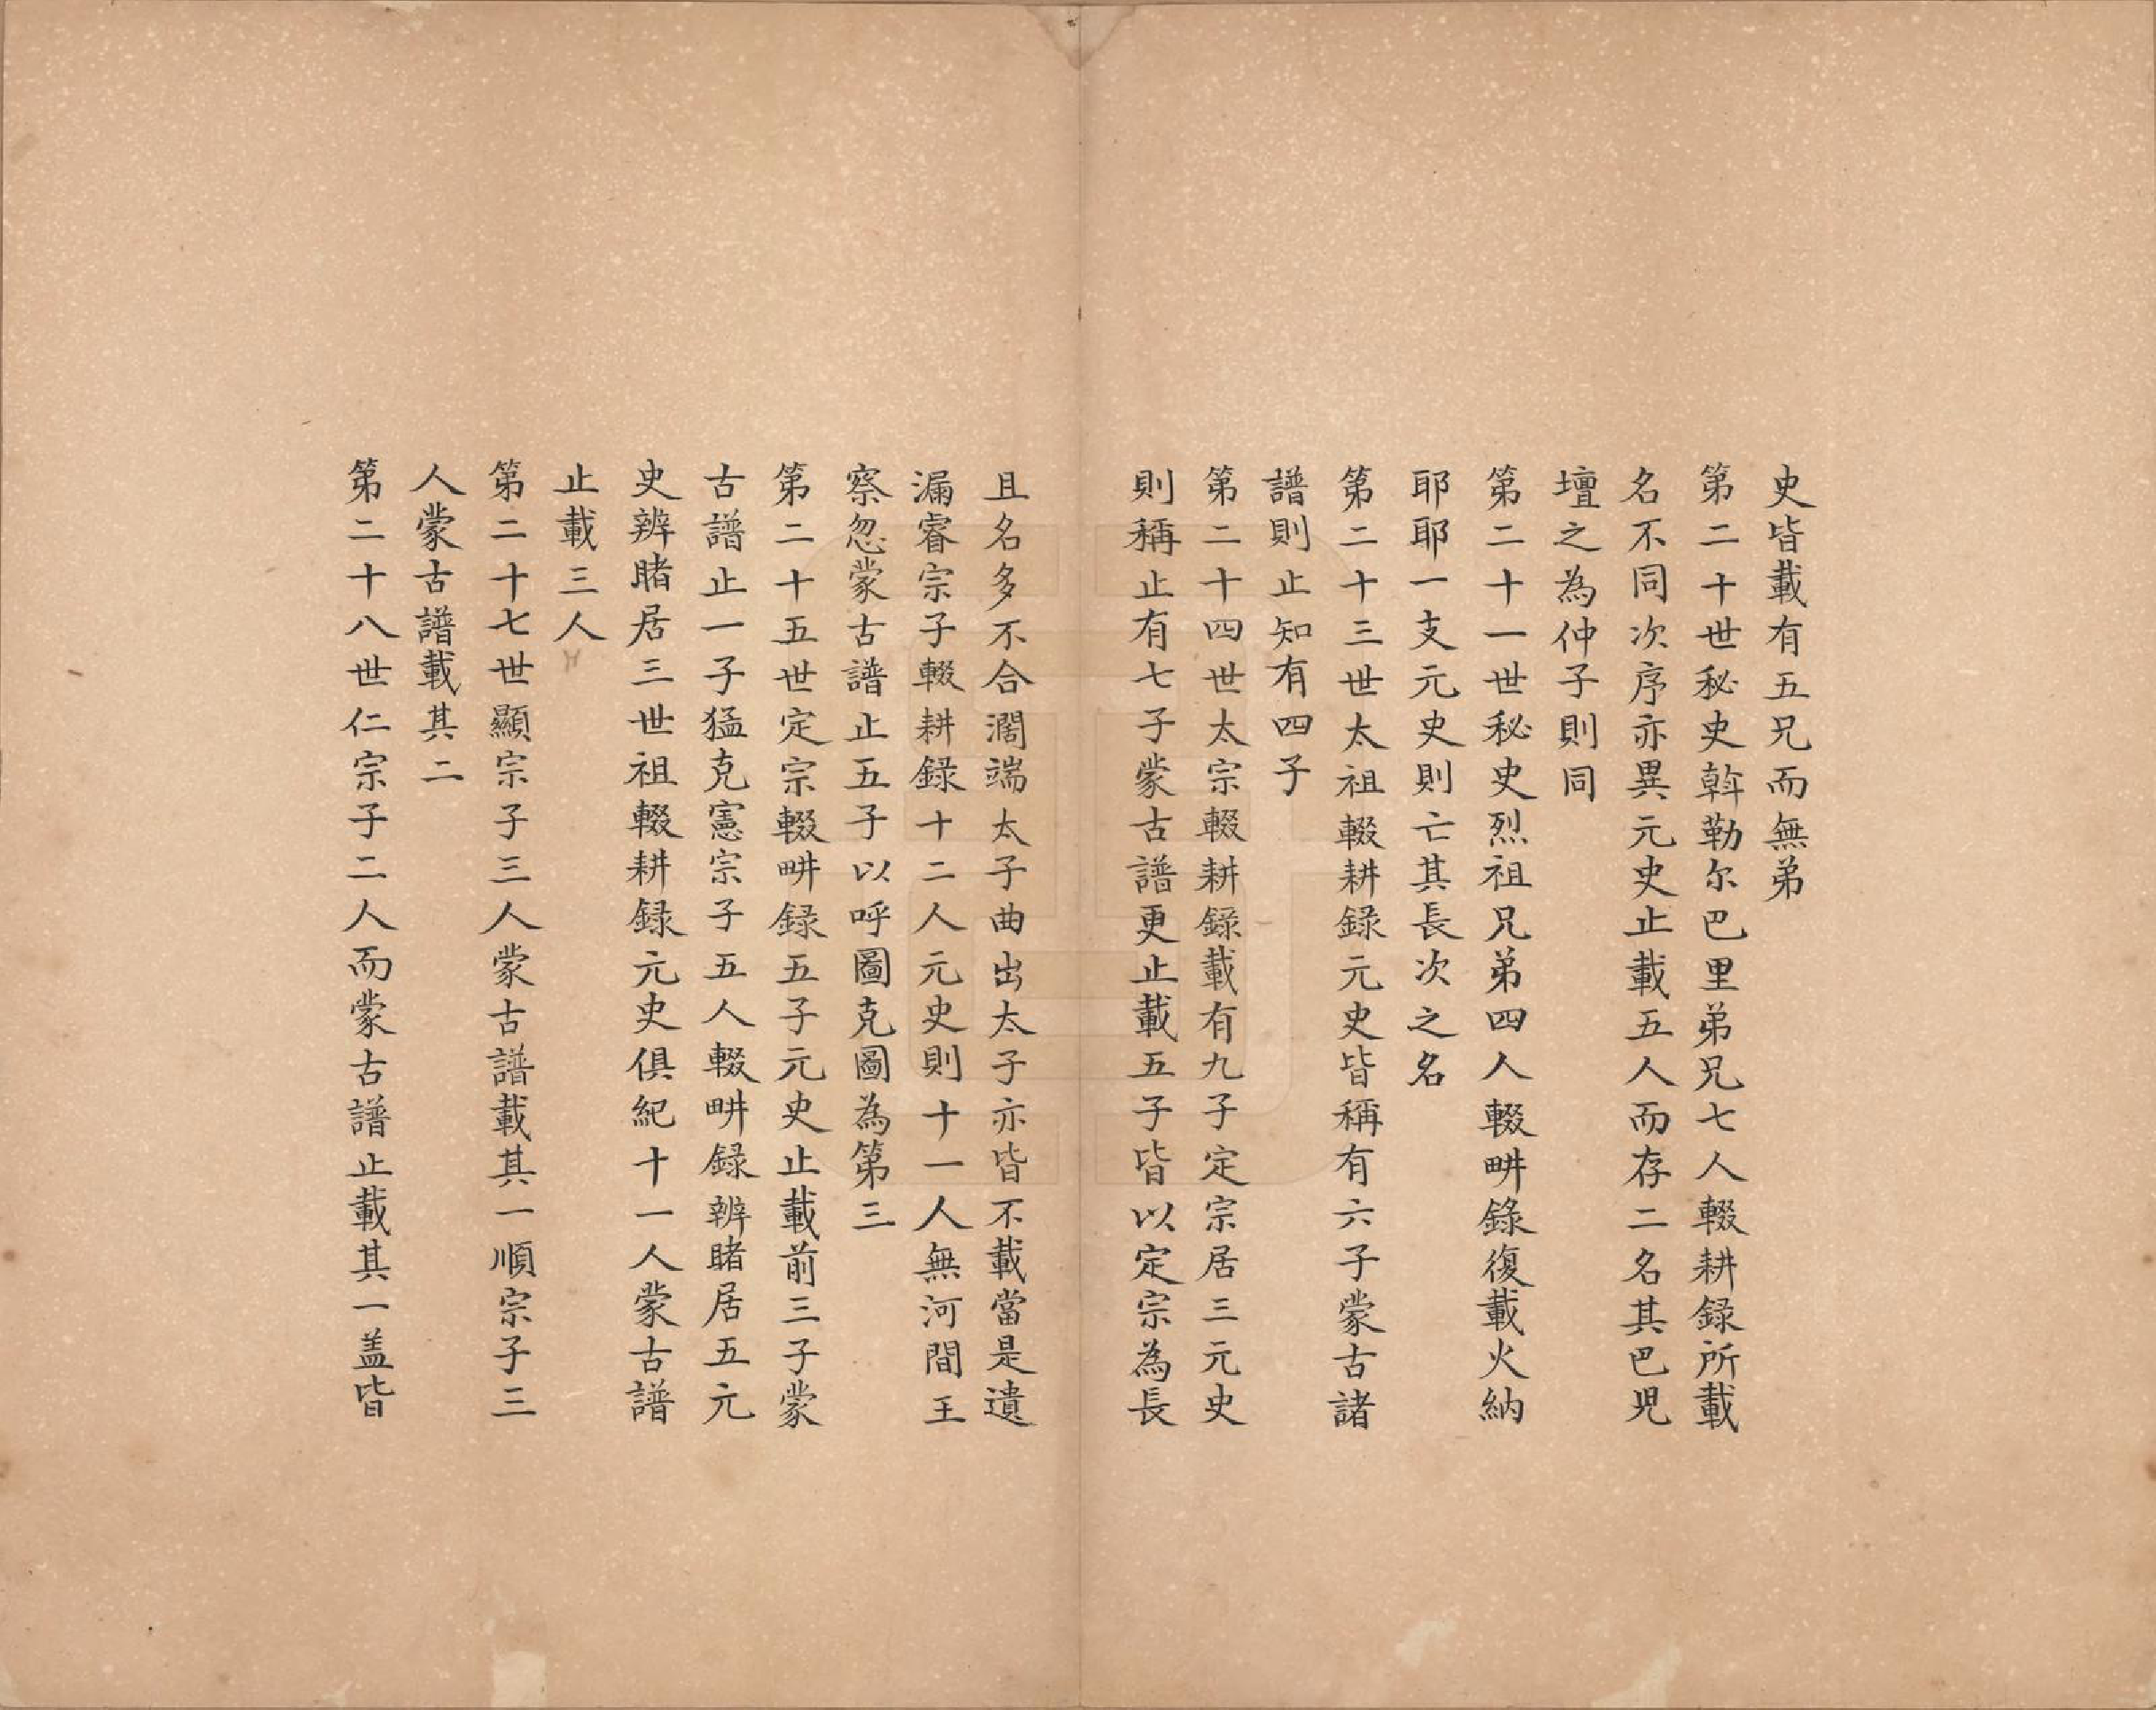 史皆載有五兄而無弟
第二十世秘史斡勒尔巴里弟兄七人輟耕録所載
名不同次序亦異元史止載五人而存二名其巴児
壇之為仲子則同
第二十一世秘史烈祖兄弟四人輟畊錄復載火納
耶耶一支元史則亡其長次之名
第二十三世太祖輟耕録元史皆稱有六子蒙古諸
譜則止知有四子
第二十四世太宗輟耕錄載有九子定宗居三元史
則稱止有七子蒙古譜更止載五子皆以定宗為長
且名多不合濶端太子曲出太子亦皆不載當是遺
漏睿宗子輟耕錄十二人元史則十一人無河間王
察忽蒙古譜止五子以呼圖克圖為第三
第二十五世定宗輟畊録五子元史止載前三子蒙
古譜止一子猛克憲宗子五人輟畊録辨睹居五元
史辨睹居三世祖輟耕録元史俱紀十一人蒙古譜
止載三人
第二十七世顯宗子三人蒙古譜載其一順宗子三
人蒙古譜載其二
第二十八世仁宗子二人而蒙古譜止載其一盖皆